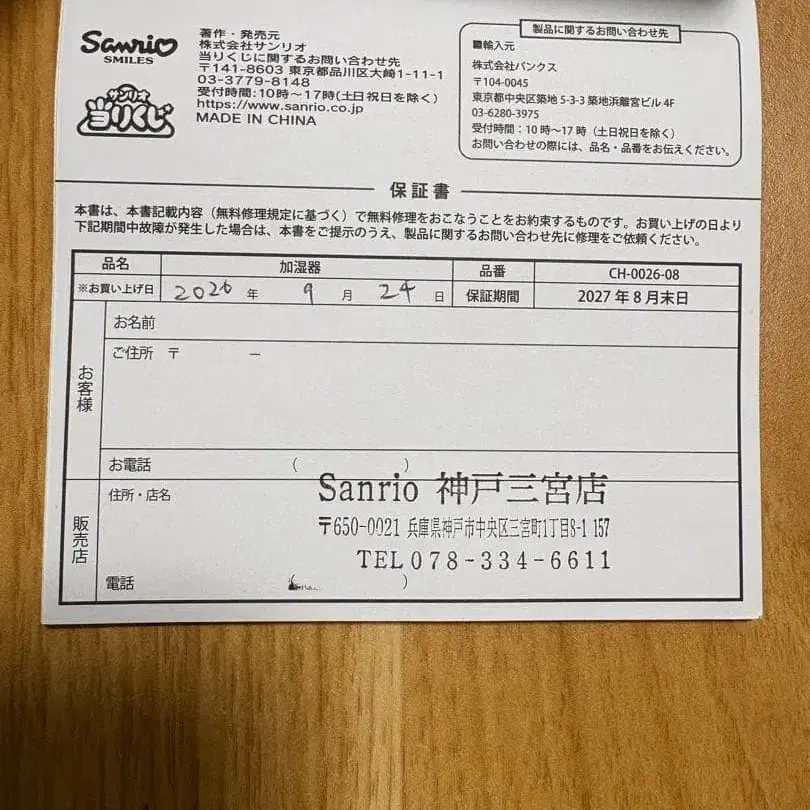 Sanrio
SMILES
サンリオ
当りくじ
著作・発売元
株式会社サンリオ
当りくじに関するお問い合わせ先
〒141-8603 東京都品川区大崎1-11-1
03-3779-8148
受付時間:10時〜17時(土日祝日を除く)
https://www.sanrio.co.jp
MADE IN CHINA
製品に関するお問い合わせ先
■輸入元
株式会社バンクス
〒104-0045
東京都中央区築地 5-3-3 築地浜離宮ビル 4F
03-6280-3975
受付時間:10 時〜17 時(土日祝日を除く)
お問い合わせの際には、品名・品番をお伝えください。
保証書
本書は、本書記載内容(無料修理規定に基づく)で無料修理をおこなうことをお約束するものです。お買い上げの日より
下記期間中故障が発生した場合は、本書をご提示のうえ、製品に関するお問い合わせ先に修理をご依頼ください。
品名 加湿器 品番 CH-0026-08
※お買い上げ日 2026 年 9 月 24 日 保証期間 2027 年 8 月末日
お客様
お名前
ご住所 〒 ー
お電話 ( )
販売店
住所・店名
Sanrio 神戸三宮店
〒650-0021 兵庫県神戸市中央区三宮町1丁目8-1 157
TEL078-334-6611
電話 )